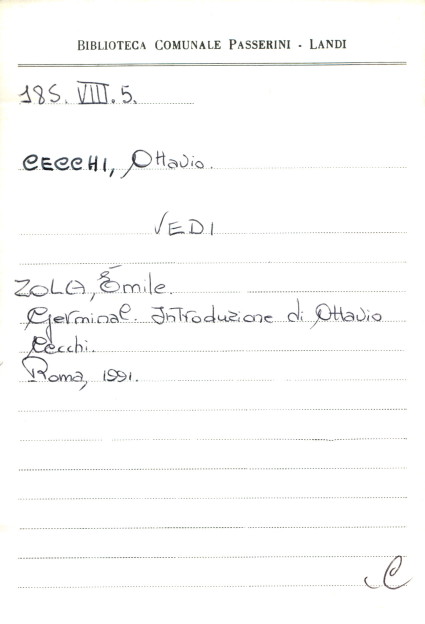 BIBLIOTECA COMUNALE PASSERINI - LANDI
185. VIII. 5.
CECCHI, Ottavio.
VEDI
ZOLA, Émile.
Germinal. Introduzione di Ottavio
Cecchi.
Roma, 1991.
C